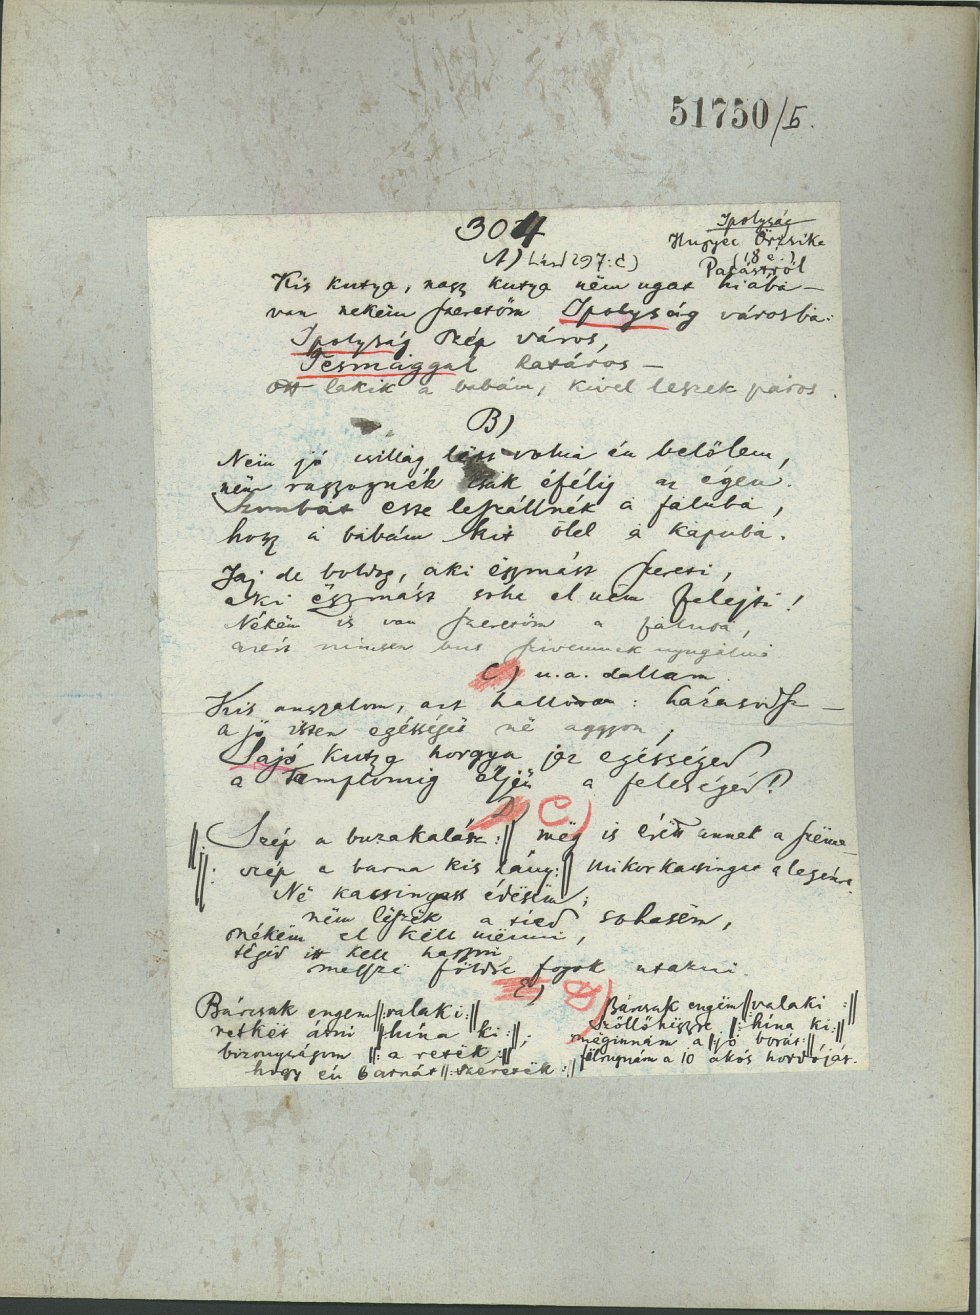 51750/5.
304
Ipolyság
Hugyec Örzsike
(18 é.)
Palástról
A) (Lásd 297:c)
Kis kutya, nagy kutya nëm ugat hiába –
van nekëm szeretőm Ipolyság városba:
Ipolyság szép város,
Tésmággal határos –
ott lakik a babám, kivel leszek páros.
B)
Nëm jó csillag lëtt volna én belőlem,
nëm ragyognék csak éfélig az égen.
Szombat esse leszállnék a faluba,
hogy a babám kit ölel a kapuba.
Jaj de boldog, aki ëgymást szereti,
aki ëgymást soha el nëm felejti!
Nékëm is van szeretőm a faluba,
azért nincsen bus szivemnek nyugalma
C) u.a. dallam.
Kis angyalom, azt hallottam: házasodsz –
a jó isten egéssége në aggyon,
Sajó kutya horgya jaz egésséged
a templomig éljën a feleséged!
D) C)
||: Szép a buzakalász :|| mëg is érëtt annak a szëme
||: szép a barna kis lány :|| mikor kacsingat a legénre.
Në kacsingass édësëm,
nëm lëszëk a tiëd sohasëm,
nékëm el këll mënni,
tégëd itt këll hagyni
messze földre fogok utazni.
E) D)
Bárcsak engem ||: valaki :||
retket ásni ||: hína ki :||,
bizonyságom ||: a retëk :||
hogy én barnát ||: szeretëk :||
Bárcsak engëm ||: valaki :||
Szöllőhëgyre ||: hína ki :||
mëginnám a ||: jó borát :||
fölrugnám a 10 akós hordóját.